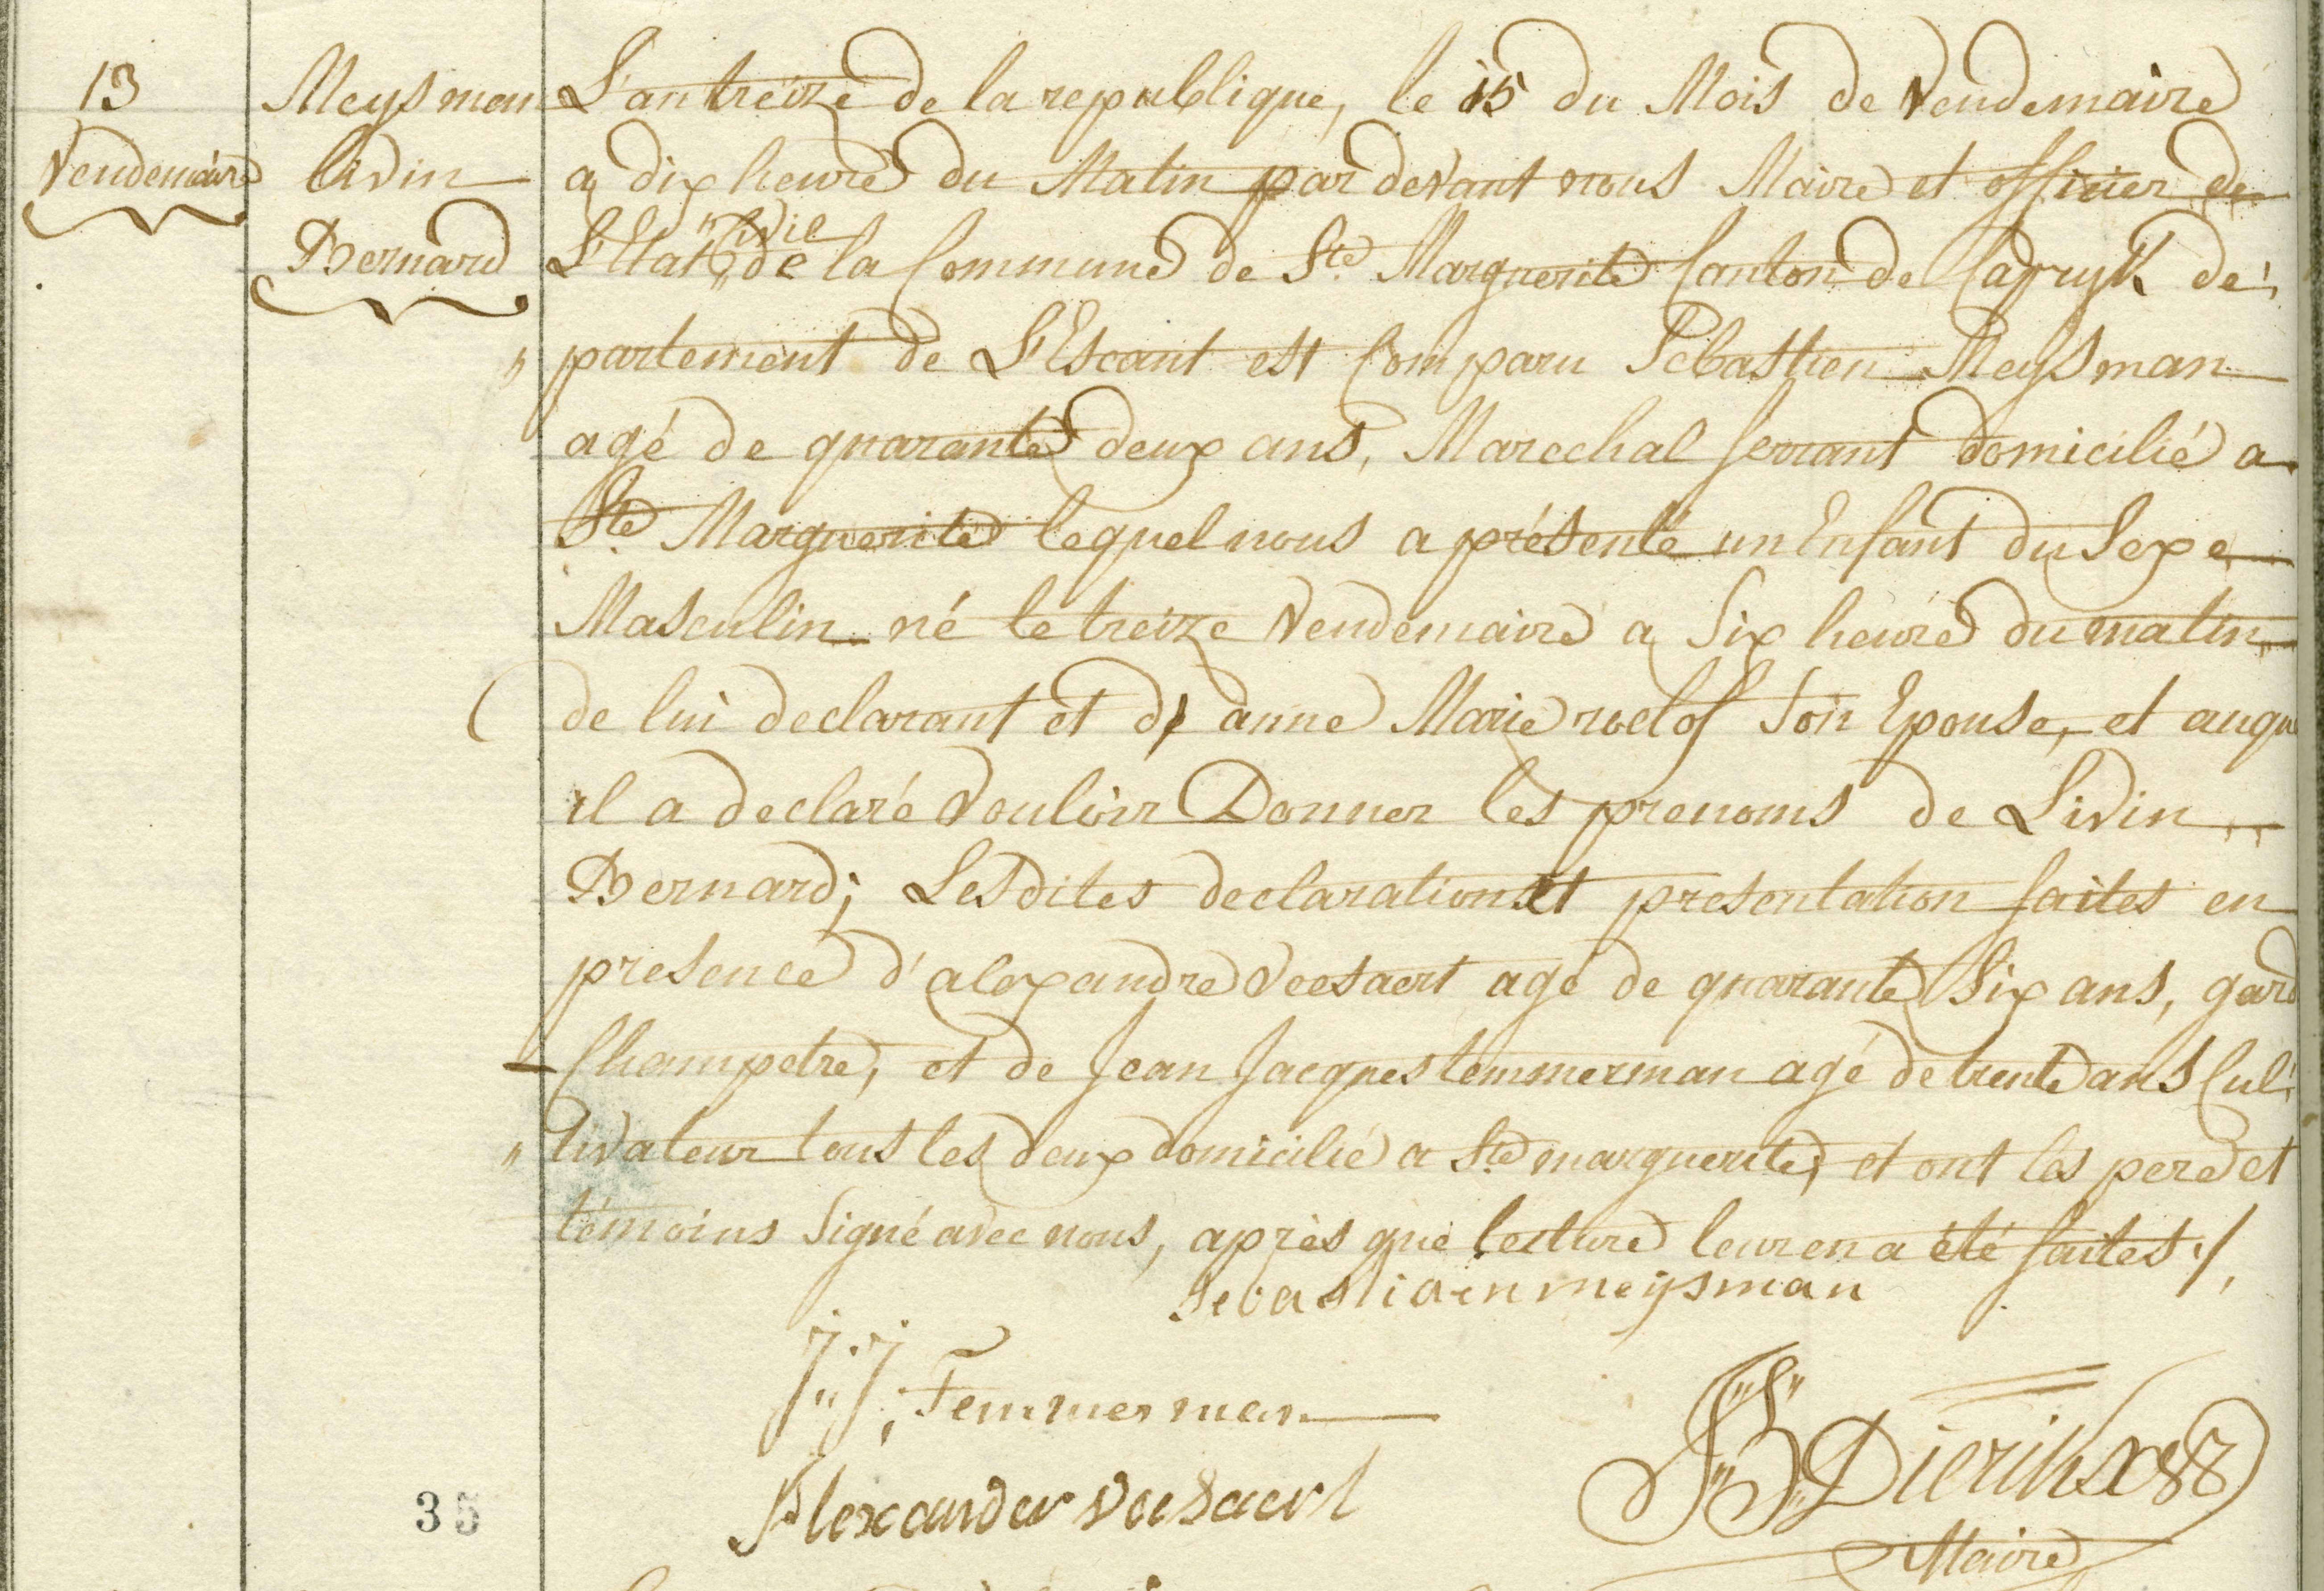 13
Vendemaire
Meysman
livin
Bernard
L'an treize de la republique, le 15 du Mois de Vendemaire
a dix heure du Matin par devant nous Maire et officier de
L'Etat civil de la Commune de Ste Marguerite Canton de Capryk de'
" partement de L'Escaut est Comparu Sebastien Meysman
agé de quarante deux ans, Marechal ferrant domicilié a
Ste Marguerite lequel nous a présenté un Enfant du Sexe
Masculin né le treize Vendemaire a Six heure du matin
de lui declarant et de anne Marie roelof Son Epouse, et auque
il a declaré Vouloir Donner les prenoms de Livin
Bernard; Les dites declaration et presentation faites en
presence d'alexandre Veesaert agé de quarante Six ans, gard
Champetre, et de Jean Jacques temmerman agé de trente ans Cul
" tivateur tous les deux domicilié a Ste marguerite, et ont les pere et
témoins Signé avec nous, après que lecture leur en a été faites ./.
sebastiaen meijsman
J: J: Temmerman
Alexander Veesaert
Dierikx
Maire
35